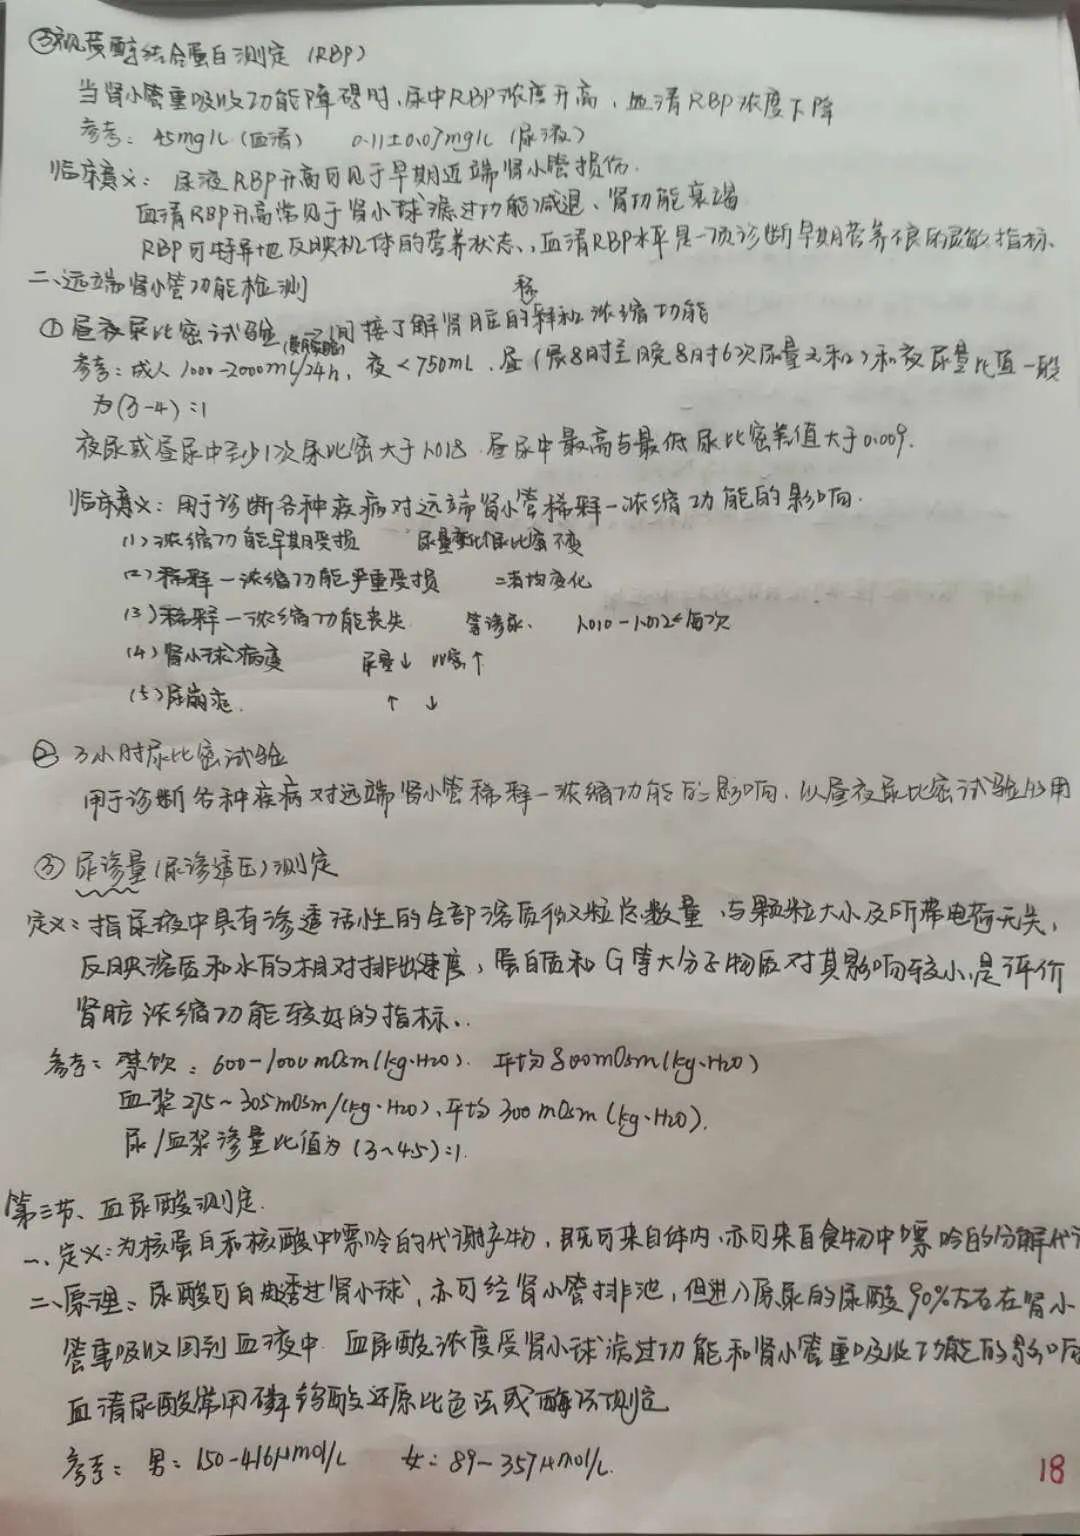 ③视黄醇结合蛋白测定 (RBP)
当肾小管重吸收功能障碍时、尿中RBP浓度升高、血清RBP浓度下降
参考: 45mg/L (血清) 0.11±0.07mg/L (尿液)
临床意义: 尿液RBP升高可见于早期近端肾小管损伤.
血清RBP升高常见于肾小球滤过功能减退、肾功能衰竭
RBP可特异地反映机体的营养状态、血清RBP水平是一项诊断早期营养不良的灵敏指标.
二、远端肾小管功能检测
稀
①昼夜尿比密试验 间接了解肾脏的释和浓缩功能
参考: 成人1000-2000mL/24h, 夜<750mL、昼(晨8时至晚8时6次尿量之和)和夜尿量比值一般
为(3-4):1
夜尿或昼尿中至少1次尿比密大于1.018. 昼尿中最高与最低尿比密差值大于0.009.
临床意义: 用于诊断各种疾病对远端肾小管稀释—浓缩功能的影响.
(1)浓缩功能早期受损 尿量变化尿比密不变
(2)稀释—浓缩功能严重受损 二者均变化
(3)稀释—浓缩功能丧失 等渗尿、 1.010-1.012 每次
(4)肾小球病变 尿量↓ 比密↑
(5)尿崩症. ↑ ↓
② 3小时尿比密试验
用于诊断各种疾病对远端肾小管稀释—浓缩功能的影响. 以昼夜尿比密试验多用
③ 尿渗量(尿渗透压)测定
定义: 指尿液中具有渗透活性的全部溶质微粒总数量、与颗粒大小及所带电荷无关,
反映溶质和水的相对排出速度, 蛋白质和G等大分子物质对其影响较小, 是评价
肾脏浓缩功能较好的指标.
参考: 禁饮: 600-1000mOsm(kg·H2O). 平均800mOsm(kg·H2O)
血浆275~305mOsm/(kg·H2O)、平均300mOsm(kg·H2O).
尿/血浆渗量比值为(3~4.5):1.
第三节、血尿酸测定.
一、定义: 为核蛋白和核酸中嘌呤的代谢产物, 既可来自体内、亦可来自食物中嘌呤的分解代
二、原理: 尿酸可自由透过肾小球, 亦可经肾小管排泄, 但进入原尿的尿酸90%左右在肾小
管重吸收回到血液中. 血尿酸浓度受肾小球滤过功能和肾小管重吸收功能的影响
血清尿酸常用磷钨酸还原比色法或酶法测定
参考: 男: 150-416μmol/L 女: 89~357μmol/L.
18